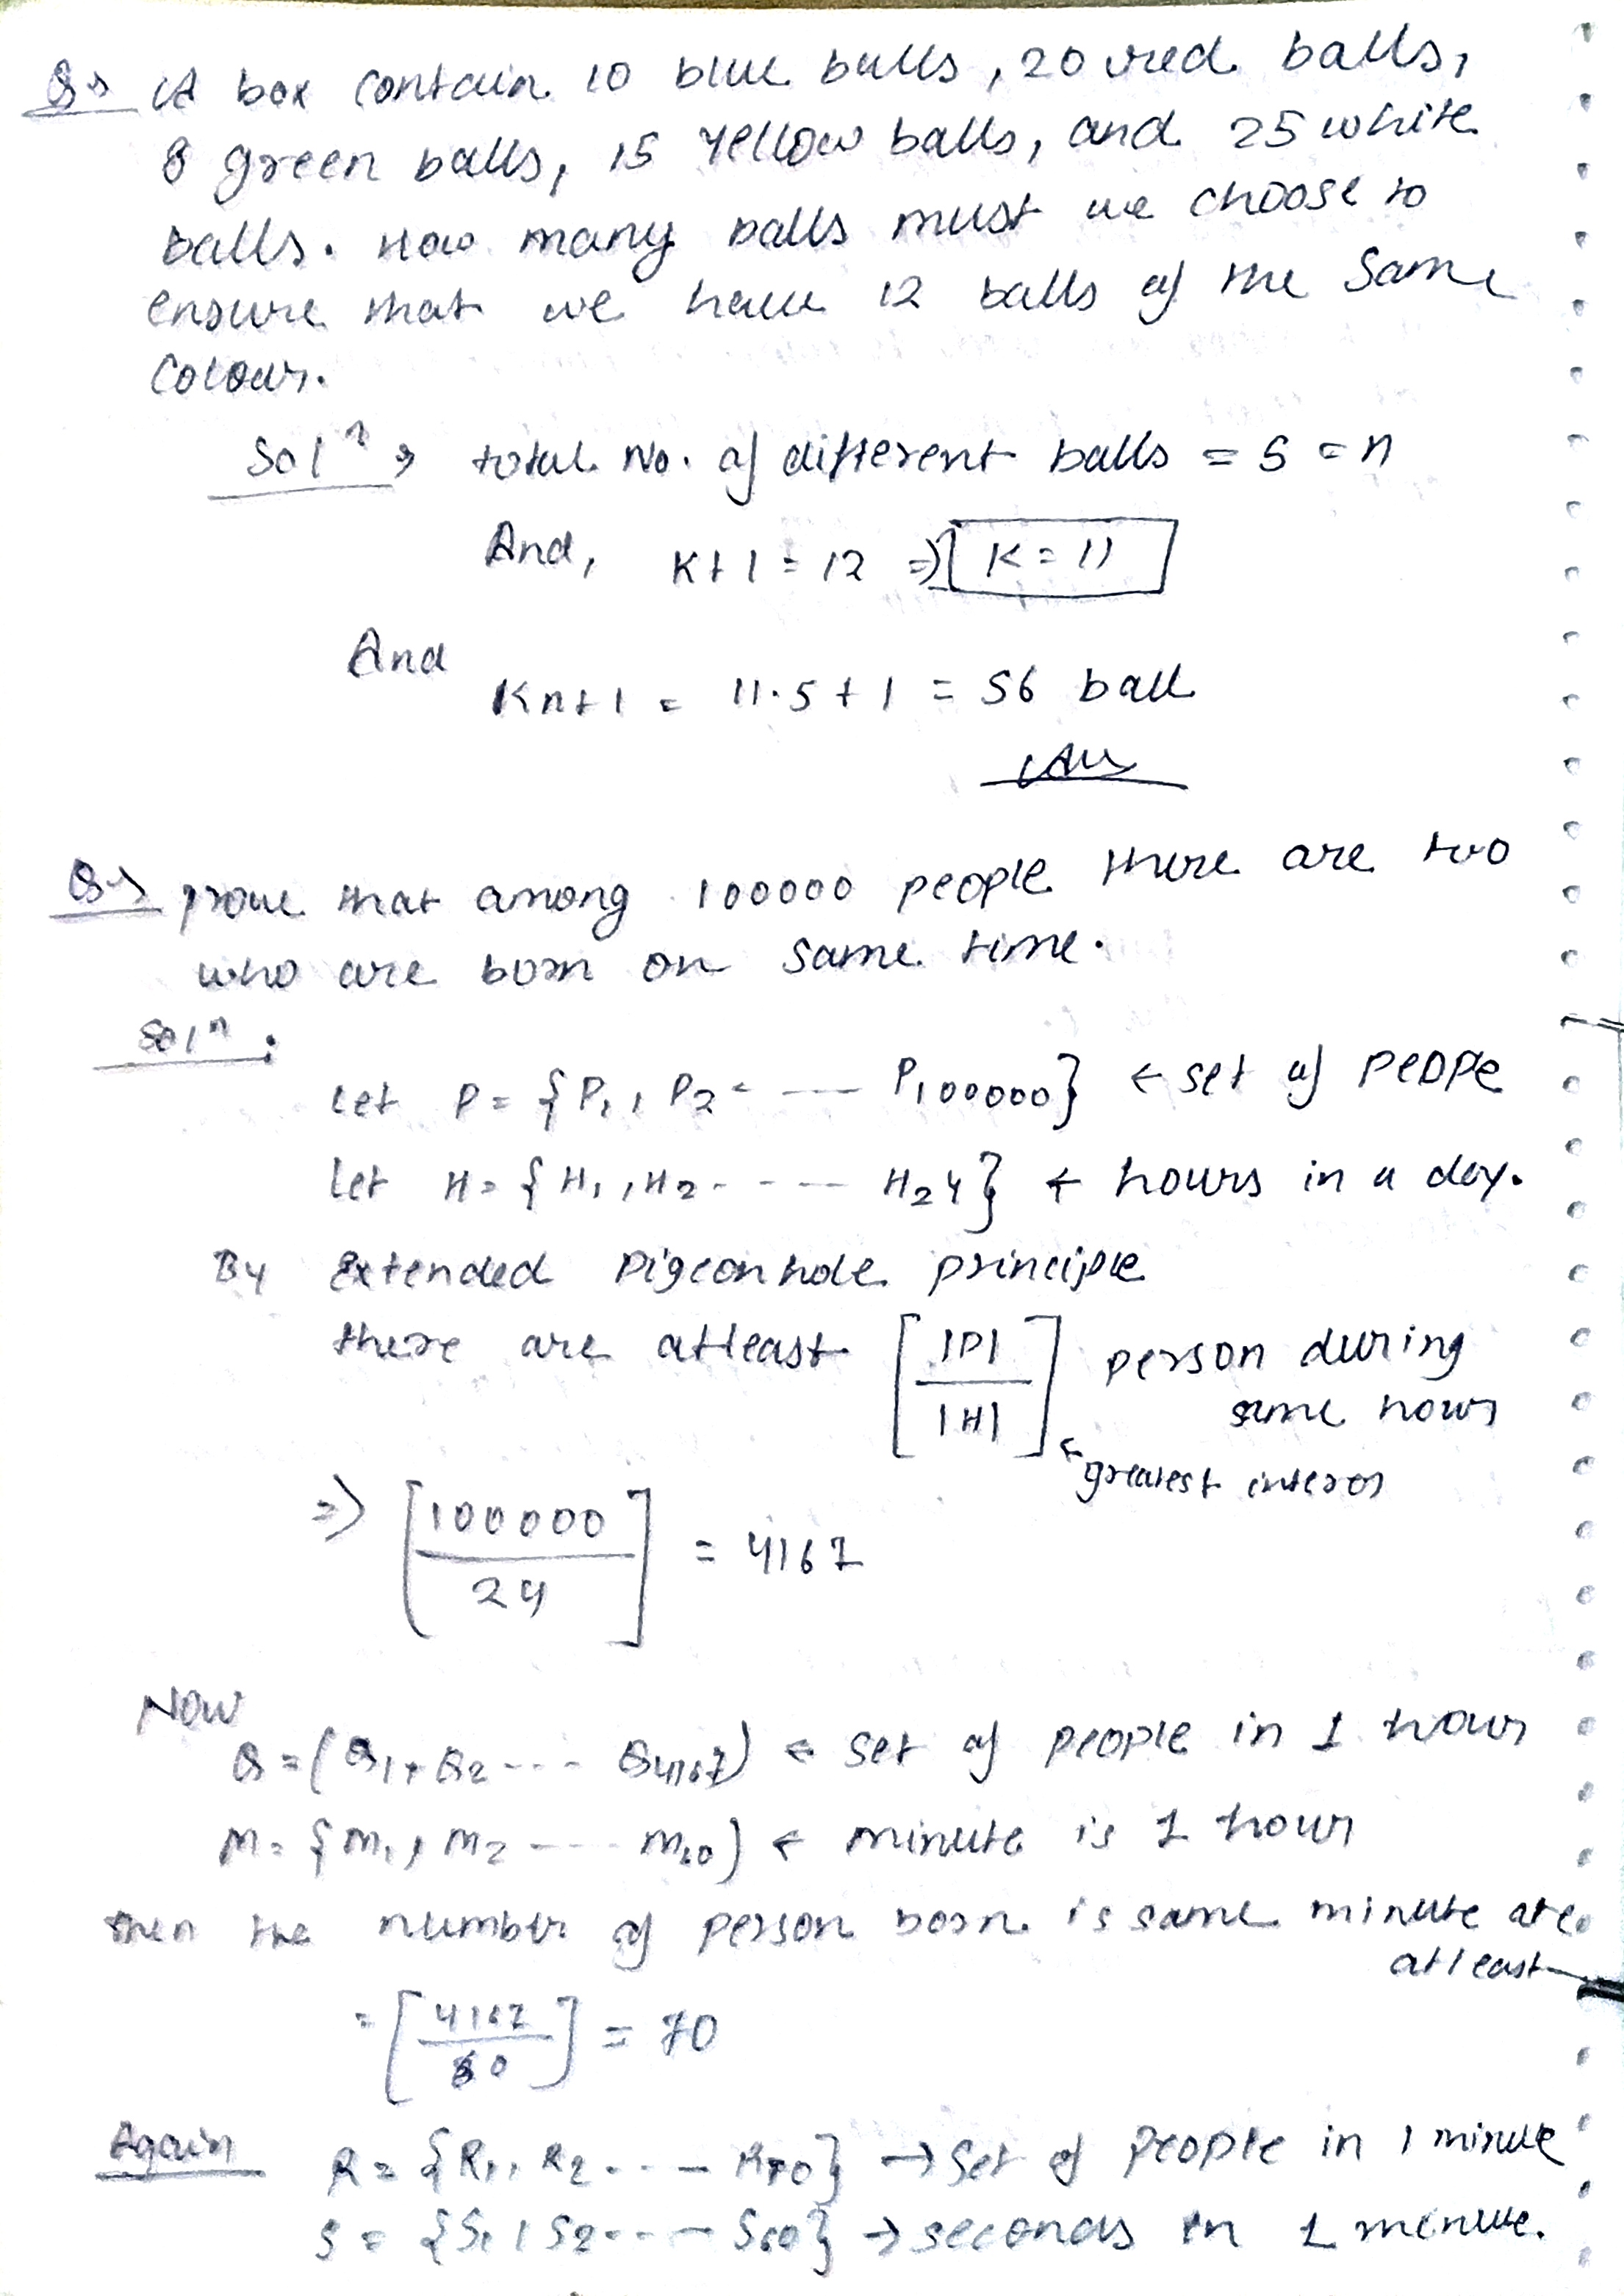 Q→ A box contain 10 blue balls, 20 red balls,
8 green balls, 15 yellow balls, and 25 white
balls. How many balls must we choose to
ensure that we have 12 balls of the same
colour.
Solⁿ → total No. of different balls = 5 = n
And, K+1 = 12 ⇒ K = 11
And
Kn+1 = 11·5+1 = 56 ball
Ans
Q→ prove that among 100000 people there are two
who are born on same time.
Solⁿ:
Let P = {P₁, P₂ ---- P₁₀₀₀₀₀} ← set of peope
Let H = {H₁, H₂ ---- H₂₄} ← hours in a day.
By Extended Pigeonhole principle
there are atleast [|P| / |H|] person during
same hours
← greatest interos
⇒ [100000 / 24] = 4167
Now
Q = (Q₁, Q₂ --- Q₄₁₆₇) ← set of people in 1 hour
M = {m₁, m₂ ---- m₆₀) ← minute is 1 hour
then the number of person born is same minute are
atleast
= [4167 / 60] = 70
Again R = {R₁, R₂ --- R₇₀} → set of people in 1 minute
S = {S₁, S₂ --- S₆₀} → seconds in 1 minute.